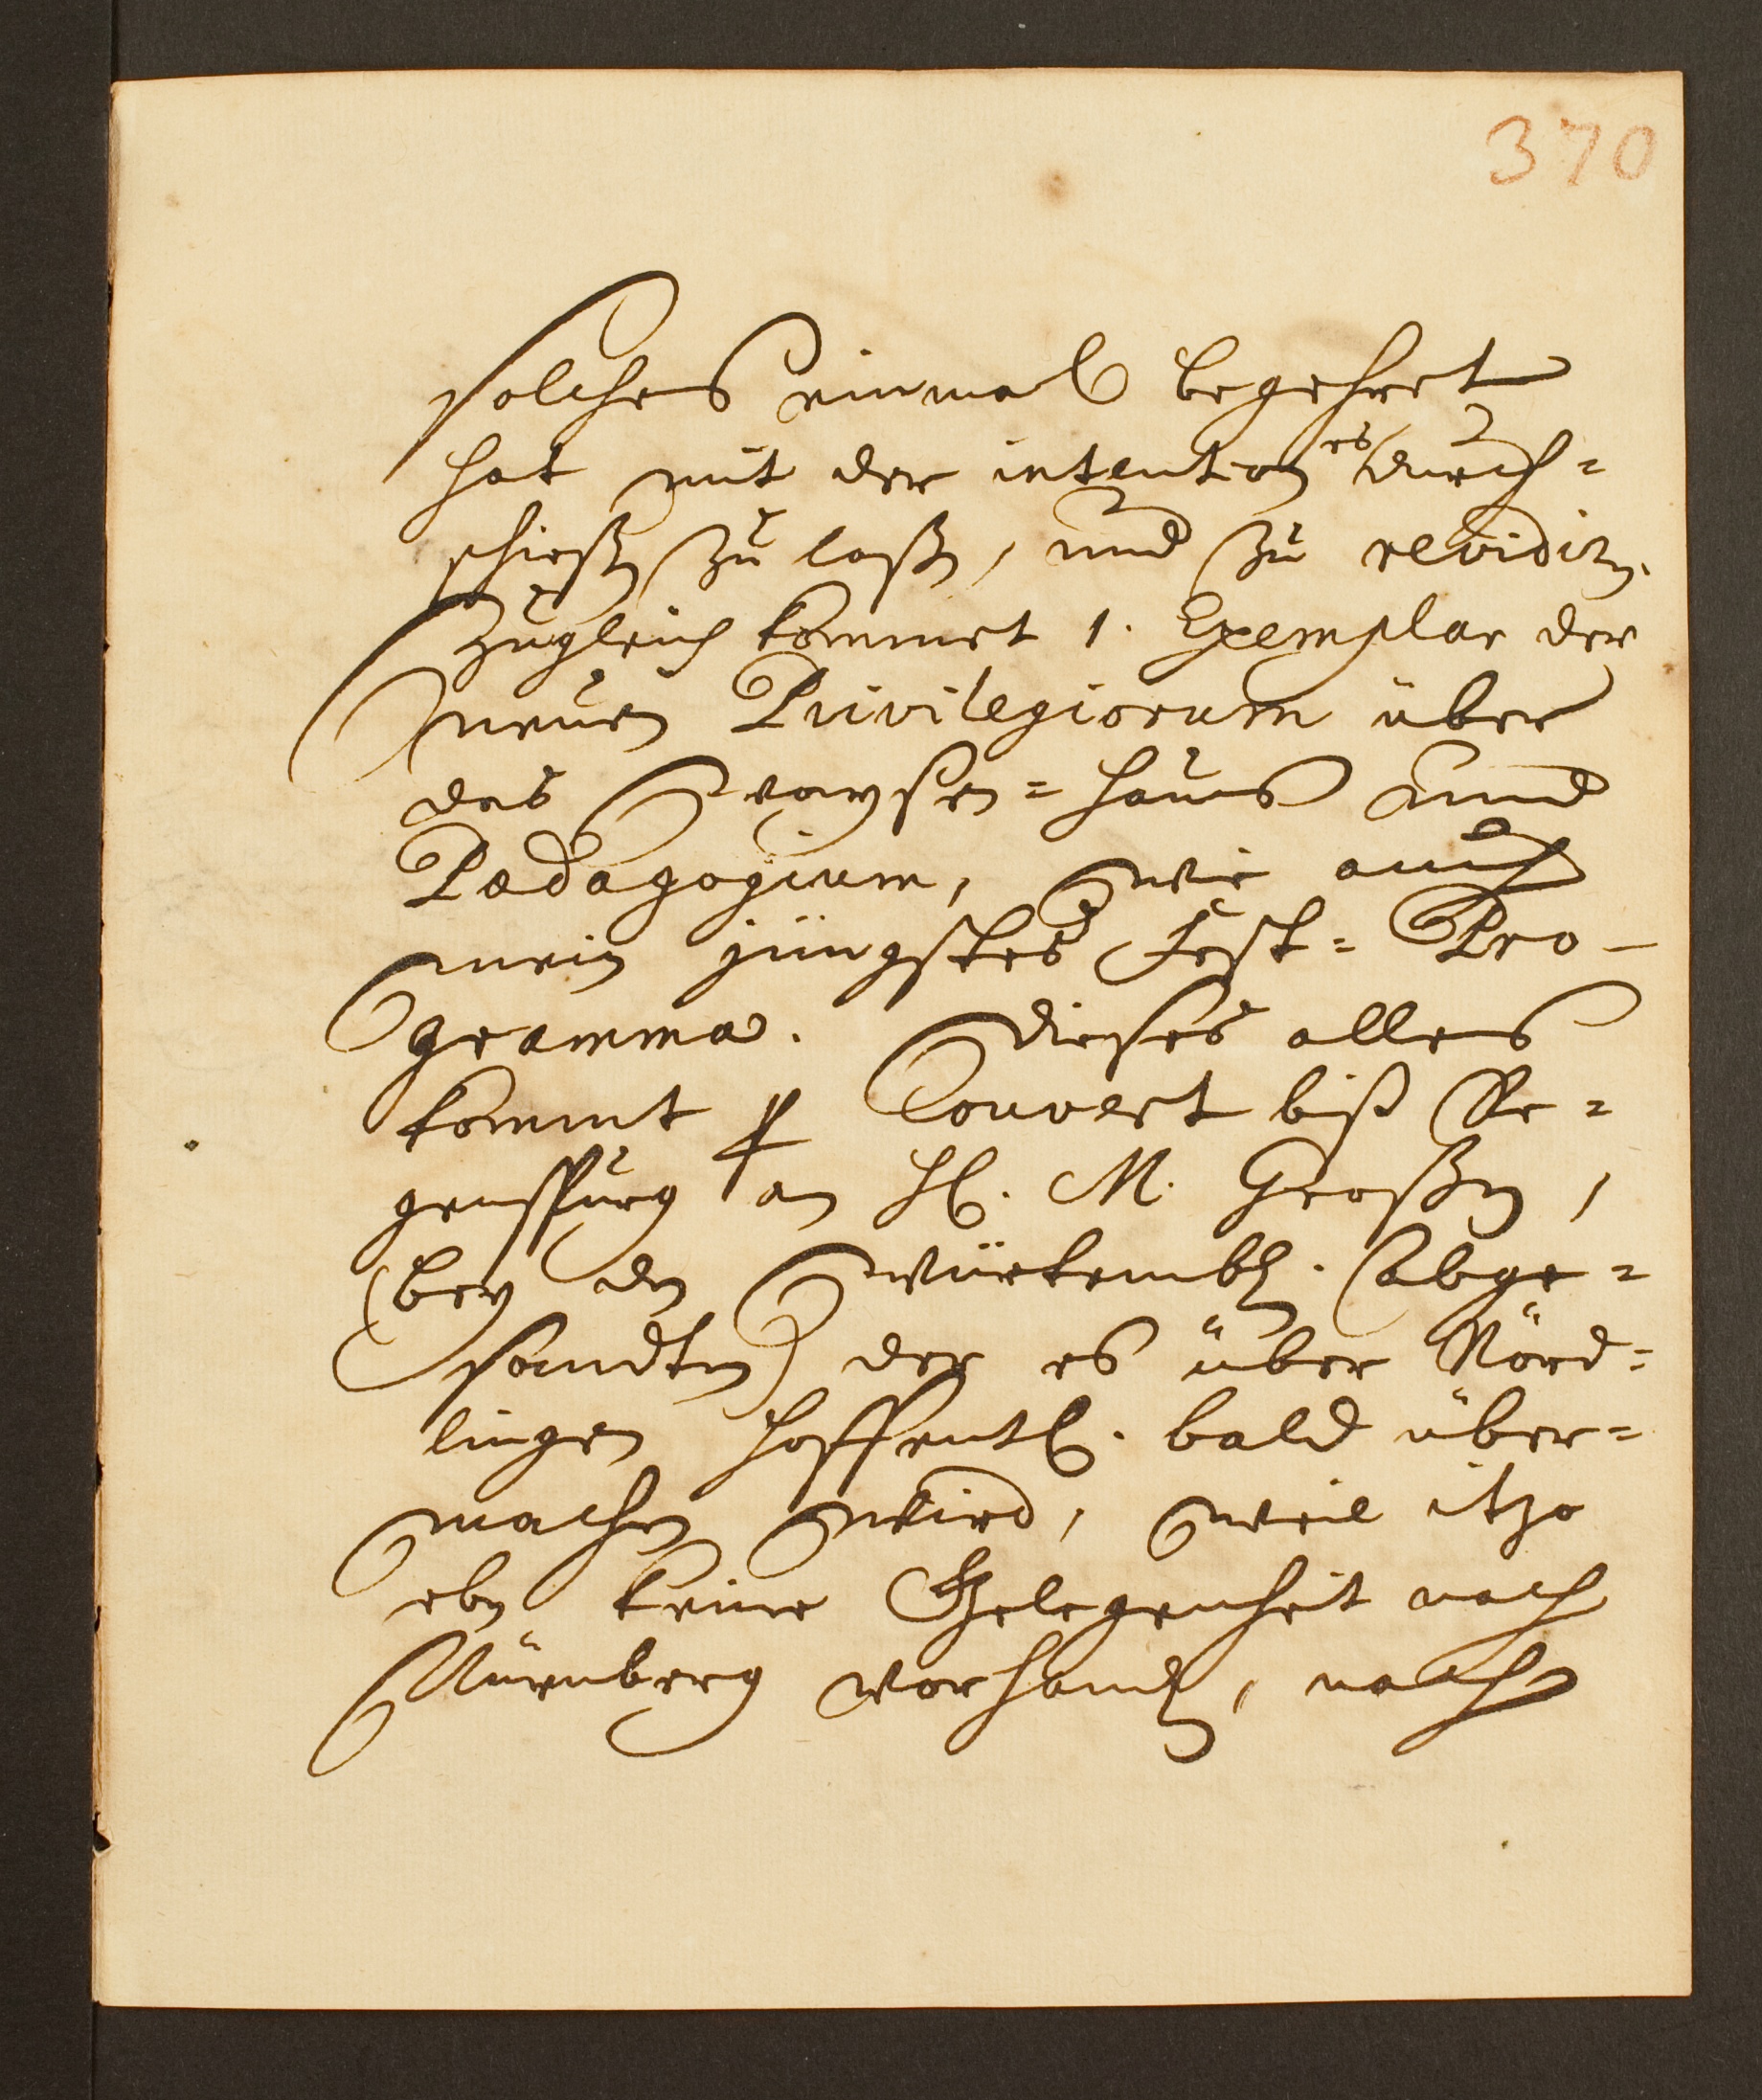 370
solches einmal begehret
hat mit der intention es durch=
schießen zu laßen, und zu revidiren.
Zugleich kommet 1. Exemplar der
neuen Privilegiorum über
das Waysen=haus und
Pædagogium, wie auch
mein jüngstes Fest= Pro-
gramma. dieses alles
kommt p Couvert biß Re=
genspurg an H. M. Großen,
(bey den würtemb. abge=
sandten) der es über Nörd=
lingen hoffentl. bald über=
machen wird, weil itzo
eben keine Gelegenheit nach
Nürnberg vorhanden, nach